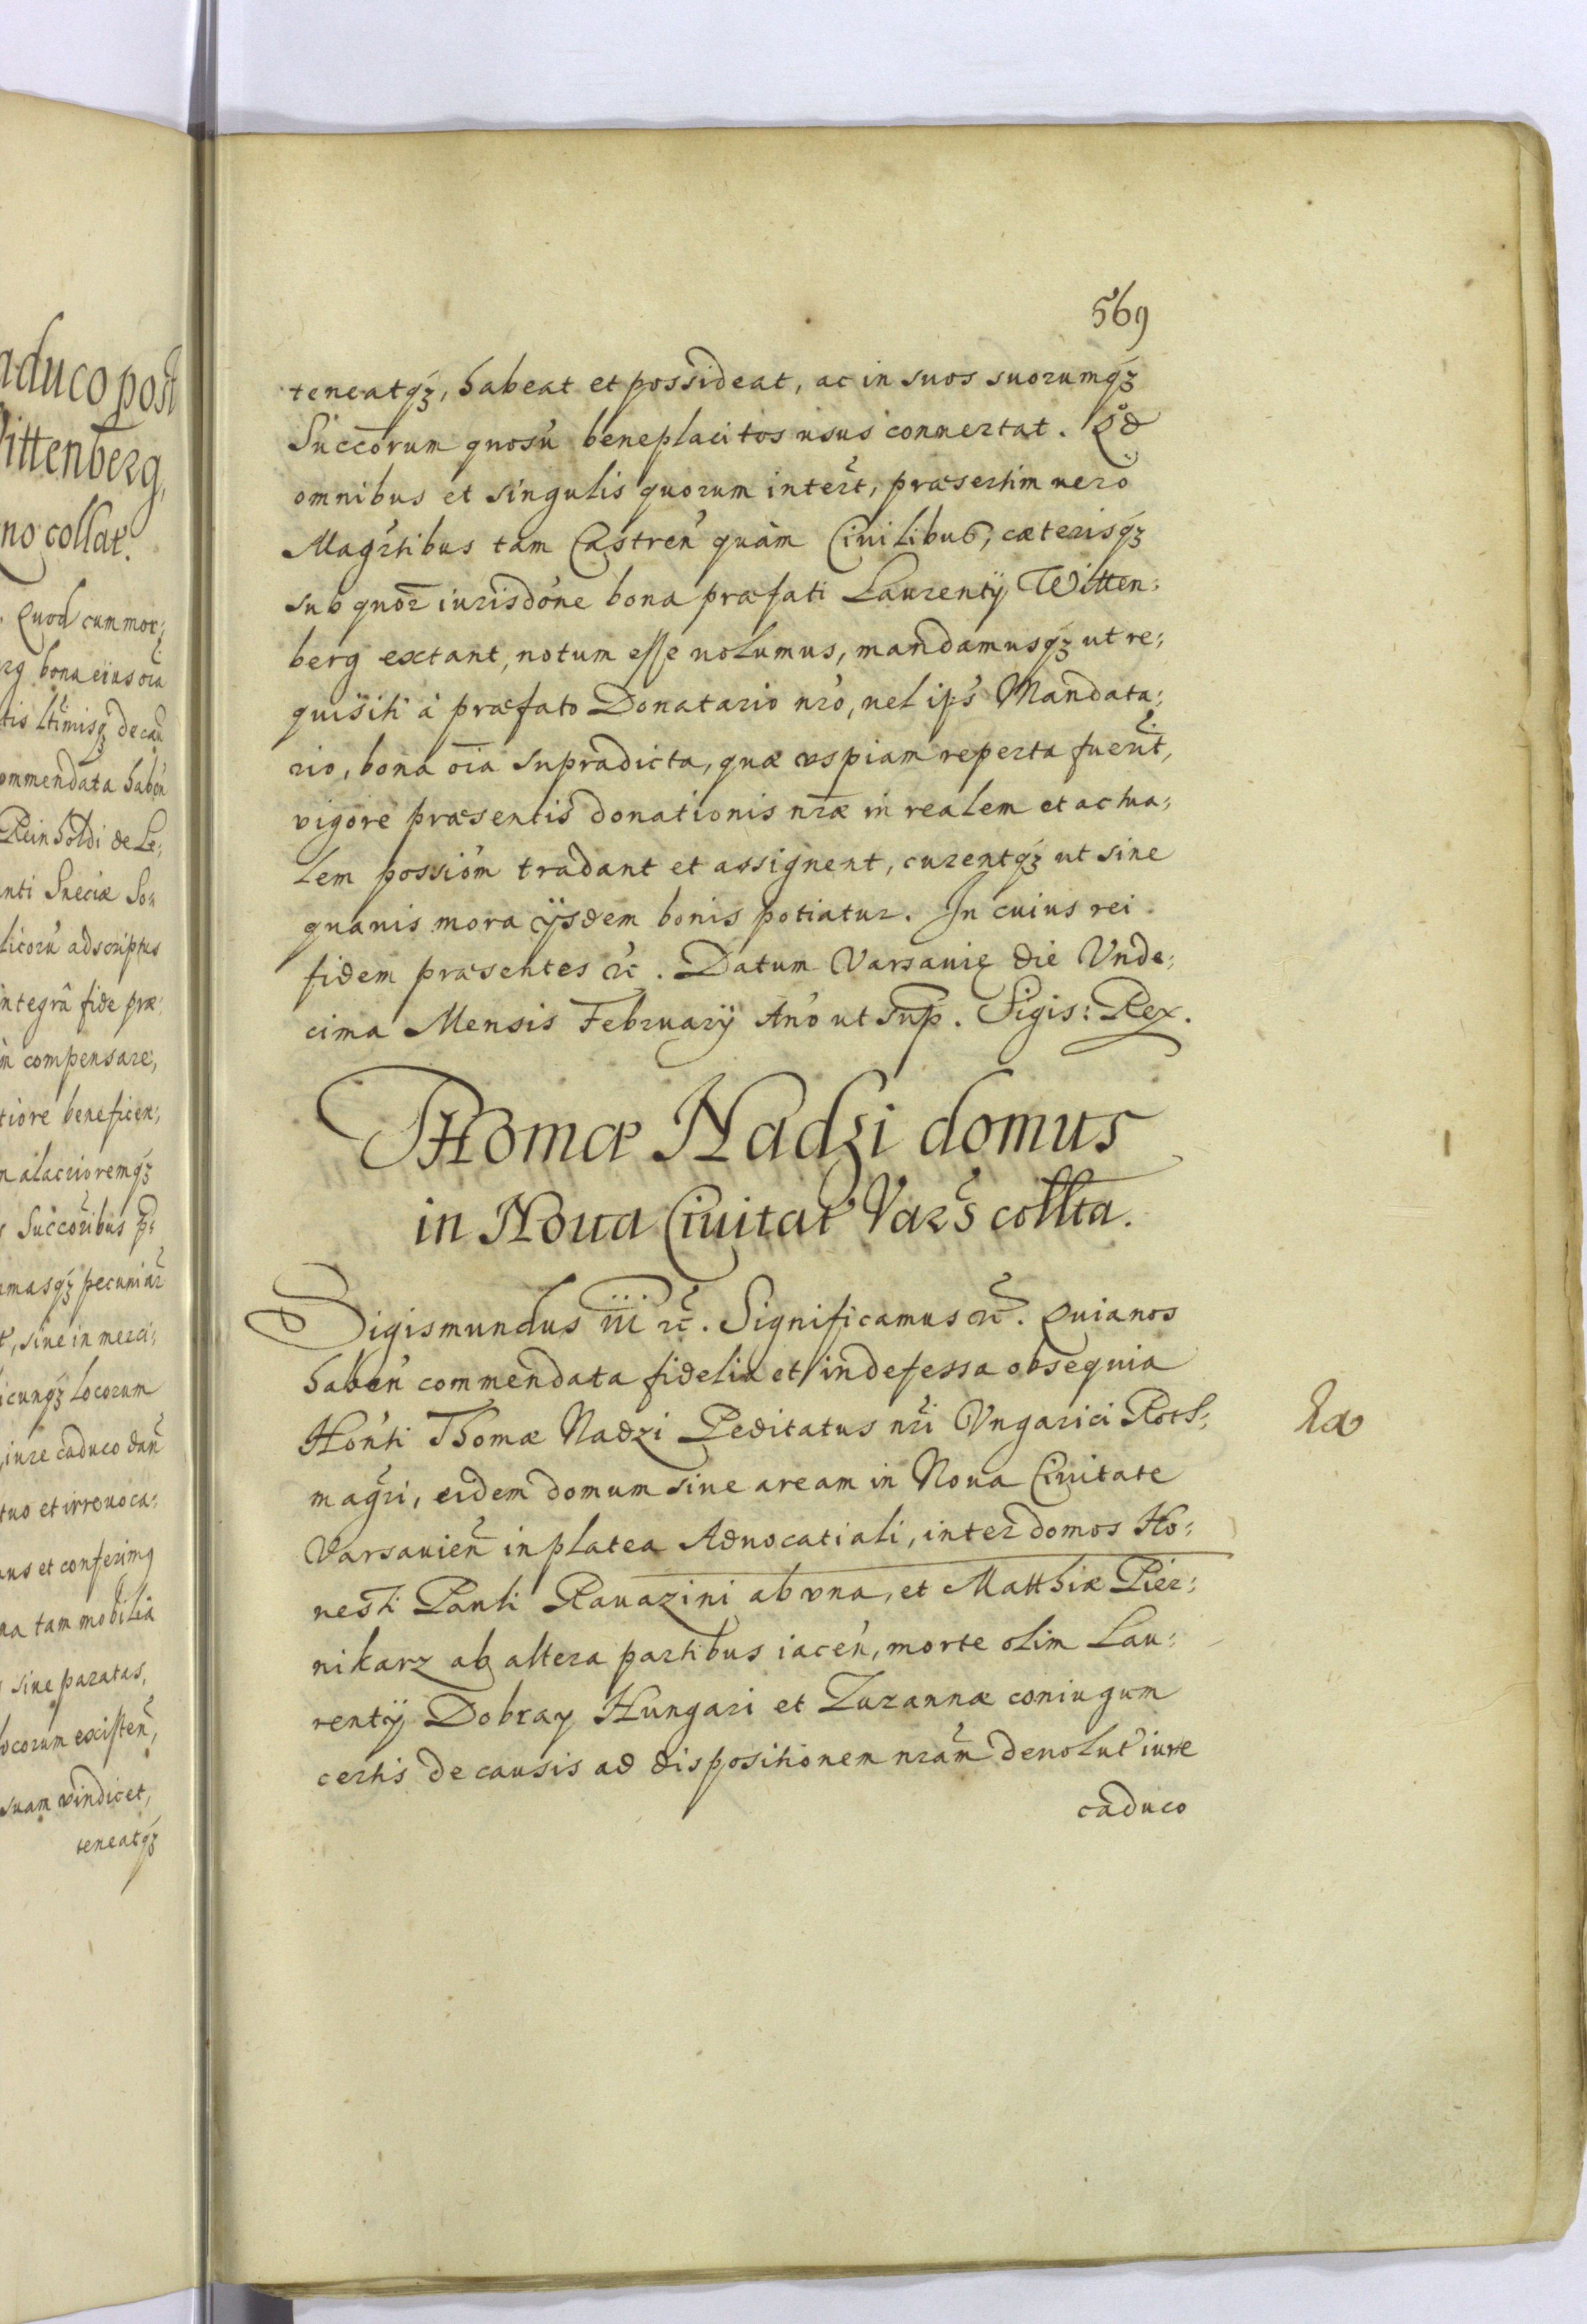 aduco post
ittenberg,
no collat.
Quod cum mor;
rg bona eius oia
tis ltimisq₃ de cau
ommendata haben
Reinholdi de Le;
nti Sueciæ So;
licoru adscriptus
integra fide præ;
m compensare,
tiore beneficen;
m alacrioremq₃
Succoribus p;
masq₃ pecuniar
t, siue in merci;
icunq₃ locorum
iure caduco dan
tuo et irreuoca;
us et conferimq
na tam mobilia
siue paratas,
locorum existen,
suam vindicet,
teneatq₃
569
teneatq₃, habeat et possideat, ac in suos suorumq₃
Succorum quosu beneplacitos usus conuertat. Qd
omnibus et singulis quorum intert, præsertim uero
Magrtibus tam Castren quàm Ciuilibus, cæterisq₃
sub quor iurisdone bona præfati Laurentÿ Witten;
berg extant, notum esse uolumus, mandamusq₃ ut re;
quisiti à præfato Donatario nro, uel ips Mandata;
rio, bona oia supradicta, quæ uspiam reperta fuerut,
vigore præsentis donationis nræ in realem et actua;
lem possiom tradant et assignent, curentq₃ ut sine
quauis mora ijsdem bonis potiatur. In cuius rei
fidem præsentes etc. Datum Varsauię die Vnde;
cima Mensis Februarÿ Ano ut sup. Sigis: Rex.
Thomæ Nadzi domus
in Noua Ciuitat Vars collta.
Sigismundus iii etc. Significamus etc. Quia nos
haben commendata fidelia et indefessa obsequia
Honti Thomæ Nadzi Peditatus nri Vngarici Roth;
magri, eidem domum siue aream in Noua Ciuitate
Varsauien in platea Aduocatiali, inter domos Ho;
nesti Pauli Rauazini ab vna, et Matthiæ Pier;
nikarz ab altera partibus iacen, morte olim Lau;
rentÿ Dobray Hungari et Zuzannæ coniugum
certis de causis ad dispositionem nram deuolut iure
caduco